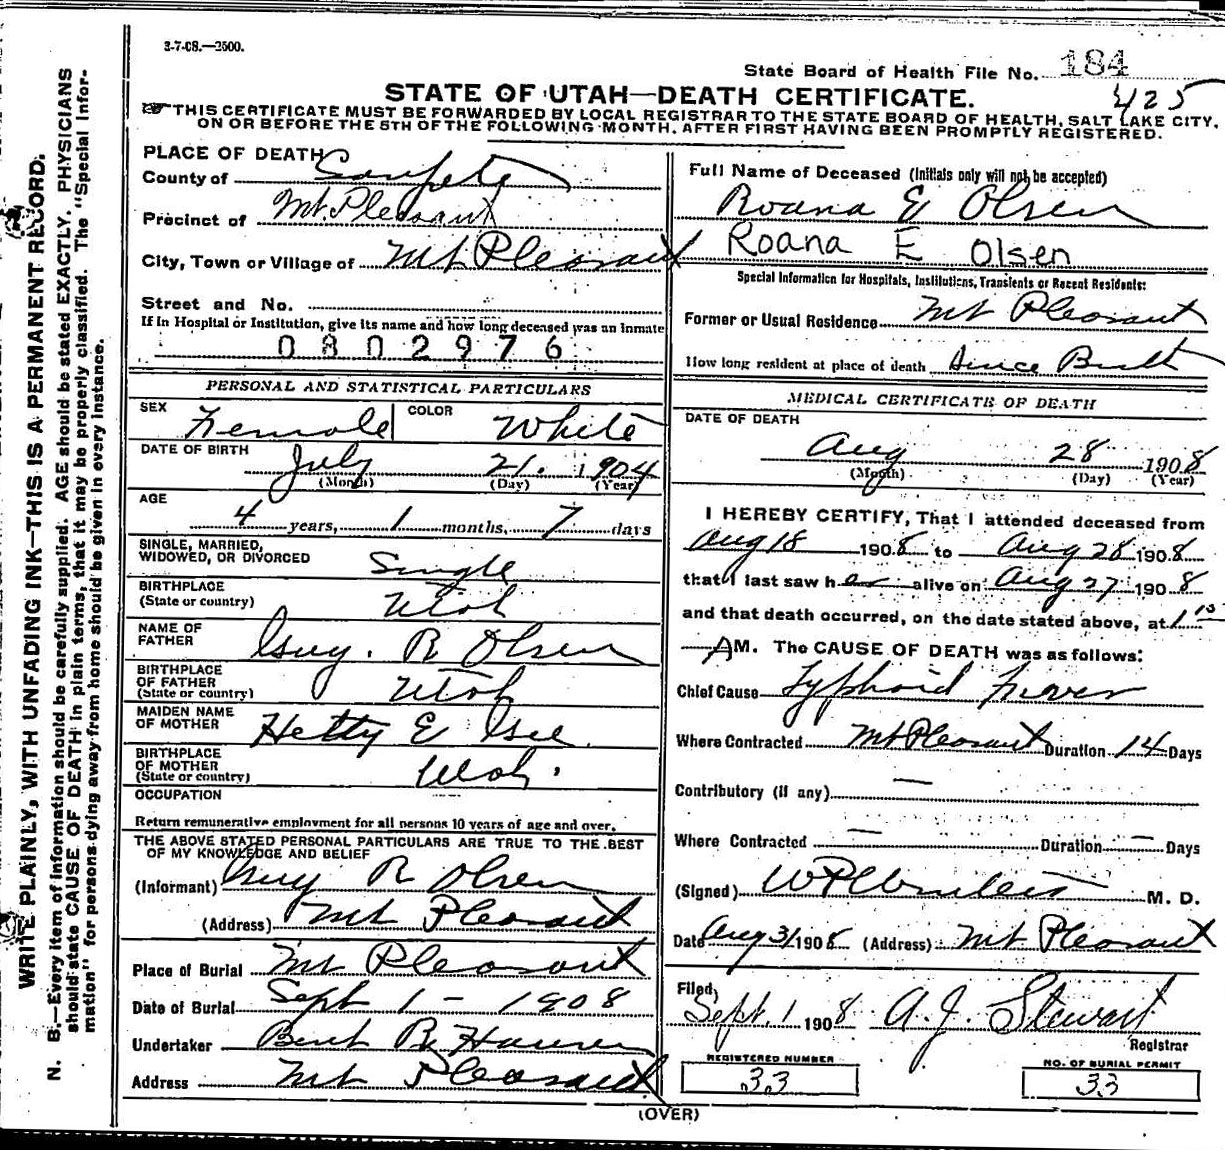 3-7-08.—2500.
State Board of Health File No. 184
425
STATE OF UTAH—DEATH CERTIFICATE.
THIS CERTIFICATE MUST BE FORWARDED BY LOCAL REGISTRAR TO THE STATE BOARD OF HEALTH, SALT LAKE CITY,
ON OR BEFORE THE 5TH OF THE FOLLOWING MONTH, AFTER FIRST HAVING BEEN PROMPTLY REGISTERED.
WRITE PLAINLY, WITH UNFADING INK—THIS IS A PERMANENT RECORD.
N. B.—Every item of information should be carefully supplied. AGE should be stated EXACTLY. PHYSICIANS
should state CAUSE OF DEATH in plain terms, that it may be properly classified. The "Special Infor-
mation" for persons dying away from home should be given in every instance.
PLACE OF DEATH
County of Sanpete
Precinct of Mt. Pleasant
City, Town or Village of Mt Pleasant
Street and No.
If in Hospital or Institution, give its name and how long deceased was an inmate
0802976
PERSONAL AND STATISTICAL PARTICULARS
SEX Female COLOR White
DATE OF BIRTH July 21. 1904
(Month) (Day) (Year)
AGE
4 years, 1 months, 7 days
SINGLE, MARRIED,
WIDOWED, OR DIVORCED Single
BIRTHPLACE
(State or country) Utah
NAME OF
FATHER Guy. R Olsen
BIRTHPLACE
OF FATHER
(State or country) Utah
MAIDEN NAME
OF MOTHER Hetty E
BIRTHPLACE
OF MOTHER
(State or country) Utah.
OCCUPATION
Return remunerative employment for all persons 10 years of age and over.
THE ABOVE STATED PERSONAL PARTICULARS ARE TRUE TO THE BEST
OF MY KNOWLEDGE AND BELIEF
(Informant) Guy R Olsen
(Address) Mt Pleasant
Place of Burial Mt Pleasant
Date of Burial Sept 1 - 1908
Undertaker Bent R Hansen
Address Mt Pleasant
Full Name of Deceased (Initials only will not be accepted)
Roana E Olsen
Roana E Olsen
Special Information for Hospitals, Institutions, Transients or Recent Residents:
Former or Usual Residence Mt Pleasant
How long resident at place of death Since Birth
MEDICAL CERTIFICATE OF DEATH
DATE OF DEATH
Aug 28 1908
(Month) (Day) (Year)
I HEREBY CERTIFY, That I attended deceased from
Aug 18 1908 to Aug 28 1908
that I last saw her alive on Aug 27 1908
and that death occurred, on the date stated above, at 1 10
AM. The CAUSE OF DEATH was as follows:
Chief Cause Typhoid Fever
Where Contracted Mt Pleasant Duration 14 Days
Contributory (if any) —
Where Contracted — Duration — Days
(Signed) M. D.
Date Aug 31 1908 (Address) Mt Pleasant
Filed,
Sept. 1 1908 A. J. Stewart
Registrar
REGISTERED NUMBER
33
NO. OF BURIAL PERMIT
33
(OVER)